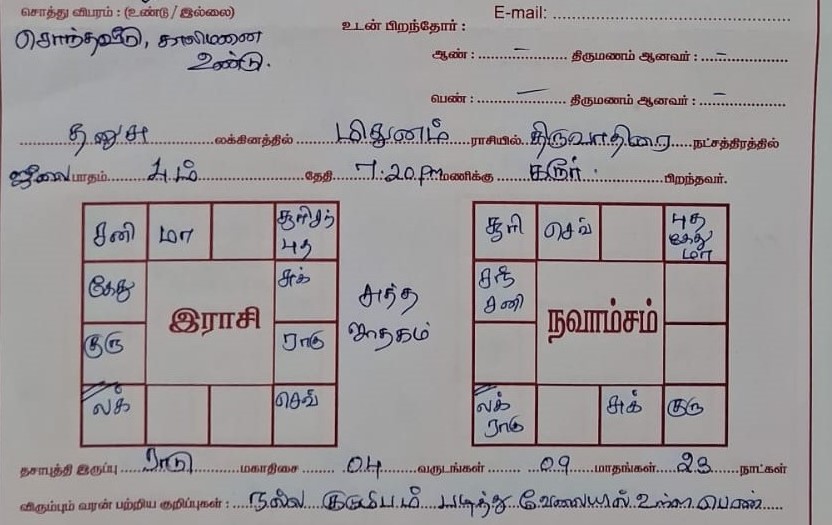 சொத்து விபரம் : (உண்டு / இல்லை)
E-mail:
சொந்தவீடு, காலிமனை
உண்டு.
உடன் பிறந்தோர் :
ஆண் : – திருமணம் ஆனவர் : –
பெண் : – திருமணம் ஆனவர் : –
தனுசு லக்கினத்தில் மிதுனம் ராசியில் திருவாதிரை நட்சத்திரத்தில்
பாதம் தேதி 7.20 PM மணிக்கு கரூர். பிறந்தவர்.
சனி மா சூரி சந் புத
கேது சுக்
குரு ராகு
லக் செவ்
இராசி
சுத்த
ஜாதகம்
சூரி செவ் புத கேது மா
சந் சனி
லக் ராகு சுக் குரு
நவாம்சம்
தசாபுத்தி இருப்பு ராகு மகாதிசை 04 வருடங்கள் 09 மாதங்கள் 23 நாட்கள்
விரும்பும் வரன் பற்றிய குறிப்புகள் : நல்ல குடும்பம் படித்து வேலையில் உள்ள பெண்